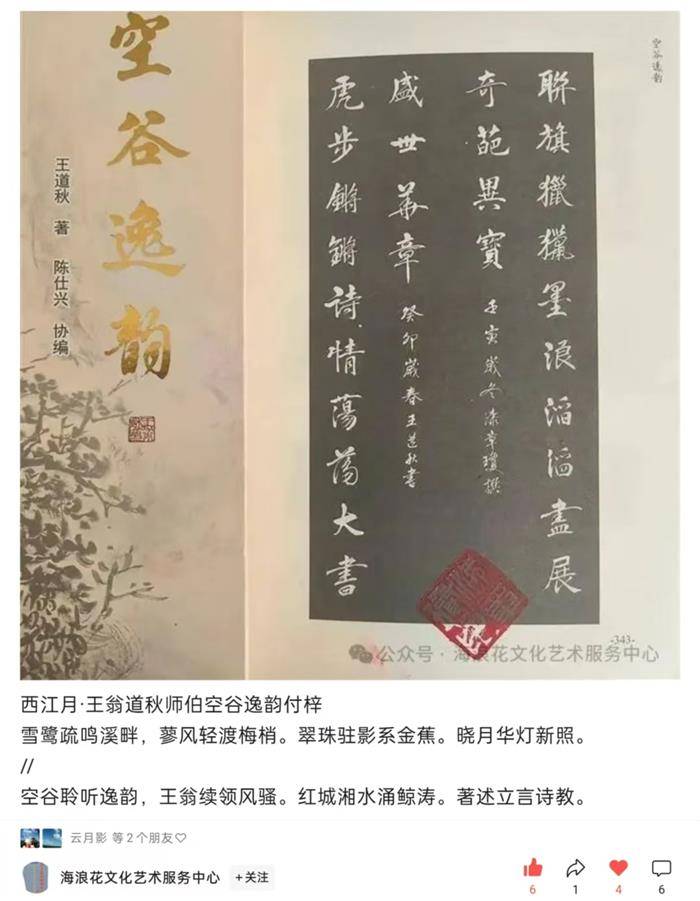 空谷逸韵
王道秋 著 陈仕兴 协编
空谷逸韵
聯旗獵獵墨浪滔滔盡展
奇葩異寶 壬寅歲冬 章瓊撰
虎步鏘鏘詩情蕩蕩大書
盛世華章 癸卯歲春王道秋書
-343-
公众号·海浪花文化艺术服务中心
西江月·王翁道秋师伯空谷逸韵付梓
雪鹭疏鸣溪畔，蓼风轻渡梅梢。翠珠驻影系金蕉。晓月华灯新照。
//
空谷聆听逸韵，王翁续领风骚。红城湘水涌鲸涛。著述立言诗教。
云月影 等2个朋友♡
海浪花文化艺术服务中心 +关注
6 1 4 6